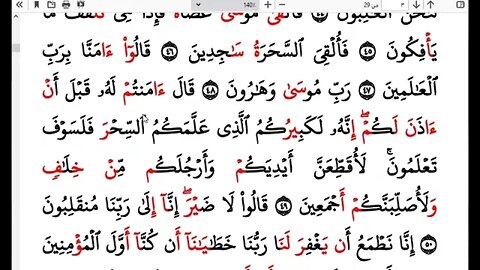 140٪ من 29 ٣
نَحْنُ ٱلْغَٰلِبُونَ ٤٤ فَأَلْقَىٰ مُوسَىٰ عَصَاهُ فَإِذَا هِيَ تَلْقَفُ مَا
يَأْفِكُونَ ٤٥ فَأُلْقِيَ ٱلسَّحَرَةُ سَٰجِدِينَ ٤٦ قَالُوٓا۟ ءَامَنَّا بِرَبِّ
ٱلْعَٰلَمِينَ ٤٧ رَبِّ مُوسَىٰ وَهَٰرُونَ ٤٨ قَالَ ءَامَنتُمْ لَهُۥ قَبْلَ أَنْ
ءَاذَنَ لَكُمْ ۖ إِنَّهُۥ لَكَبِيرُكُمُ ٱلَّذِى عَلَّمَكُمُ ٱلسِّحْرَ فَلَسَوْفَ
تَعْلَمُونَ ۚ لَأُقَطِّعَنَّ أَيْدِيَكُمْ وَأَرْجُلَكُم مِّنْ خِلَٰفٍ
وَلَأُصَلِّبَنَّكُمْ أَجْمَعِينَ ٤٩ قَالُوا۟ لَا ضَيْرَ ۖ إِنَّآ إِلَىٰ رَبِّنَا مُنقَلِبُونَ
٥٠ إِنَّا نَطْمَعُ أَن يَغْفِرَ لَنَا رَبُّنَا خَطَٰيَٰنَآ أَن كُنَّآ أَوَّلَ ٱلْمُؤْمِنِينَ